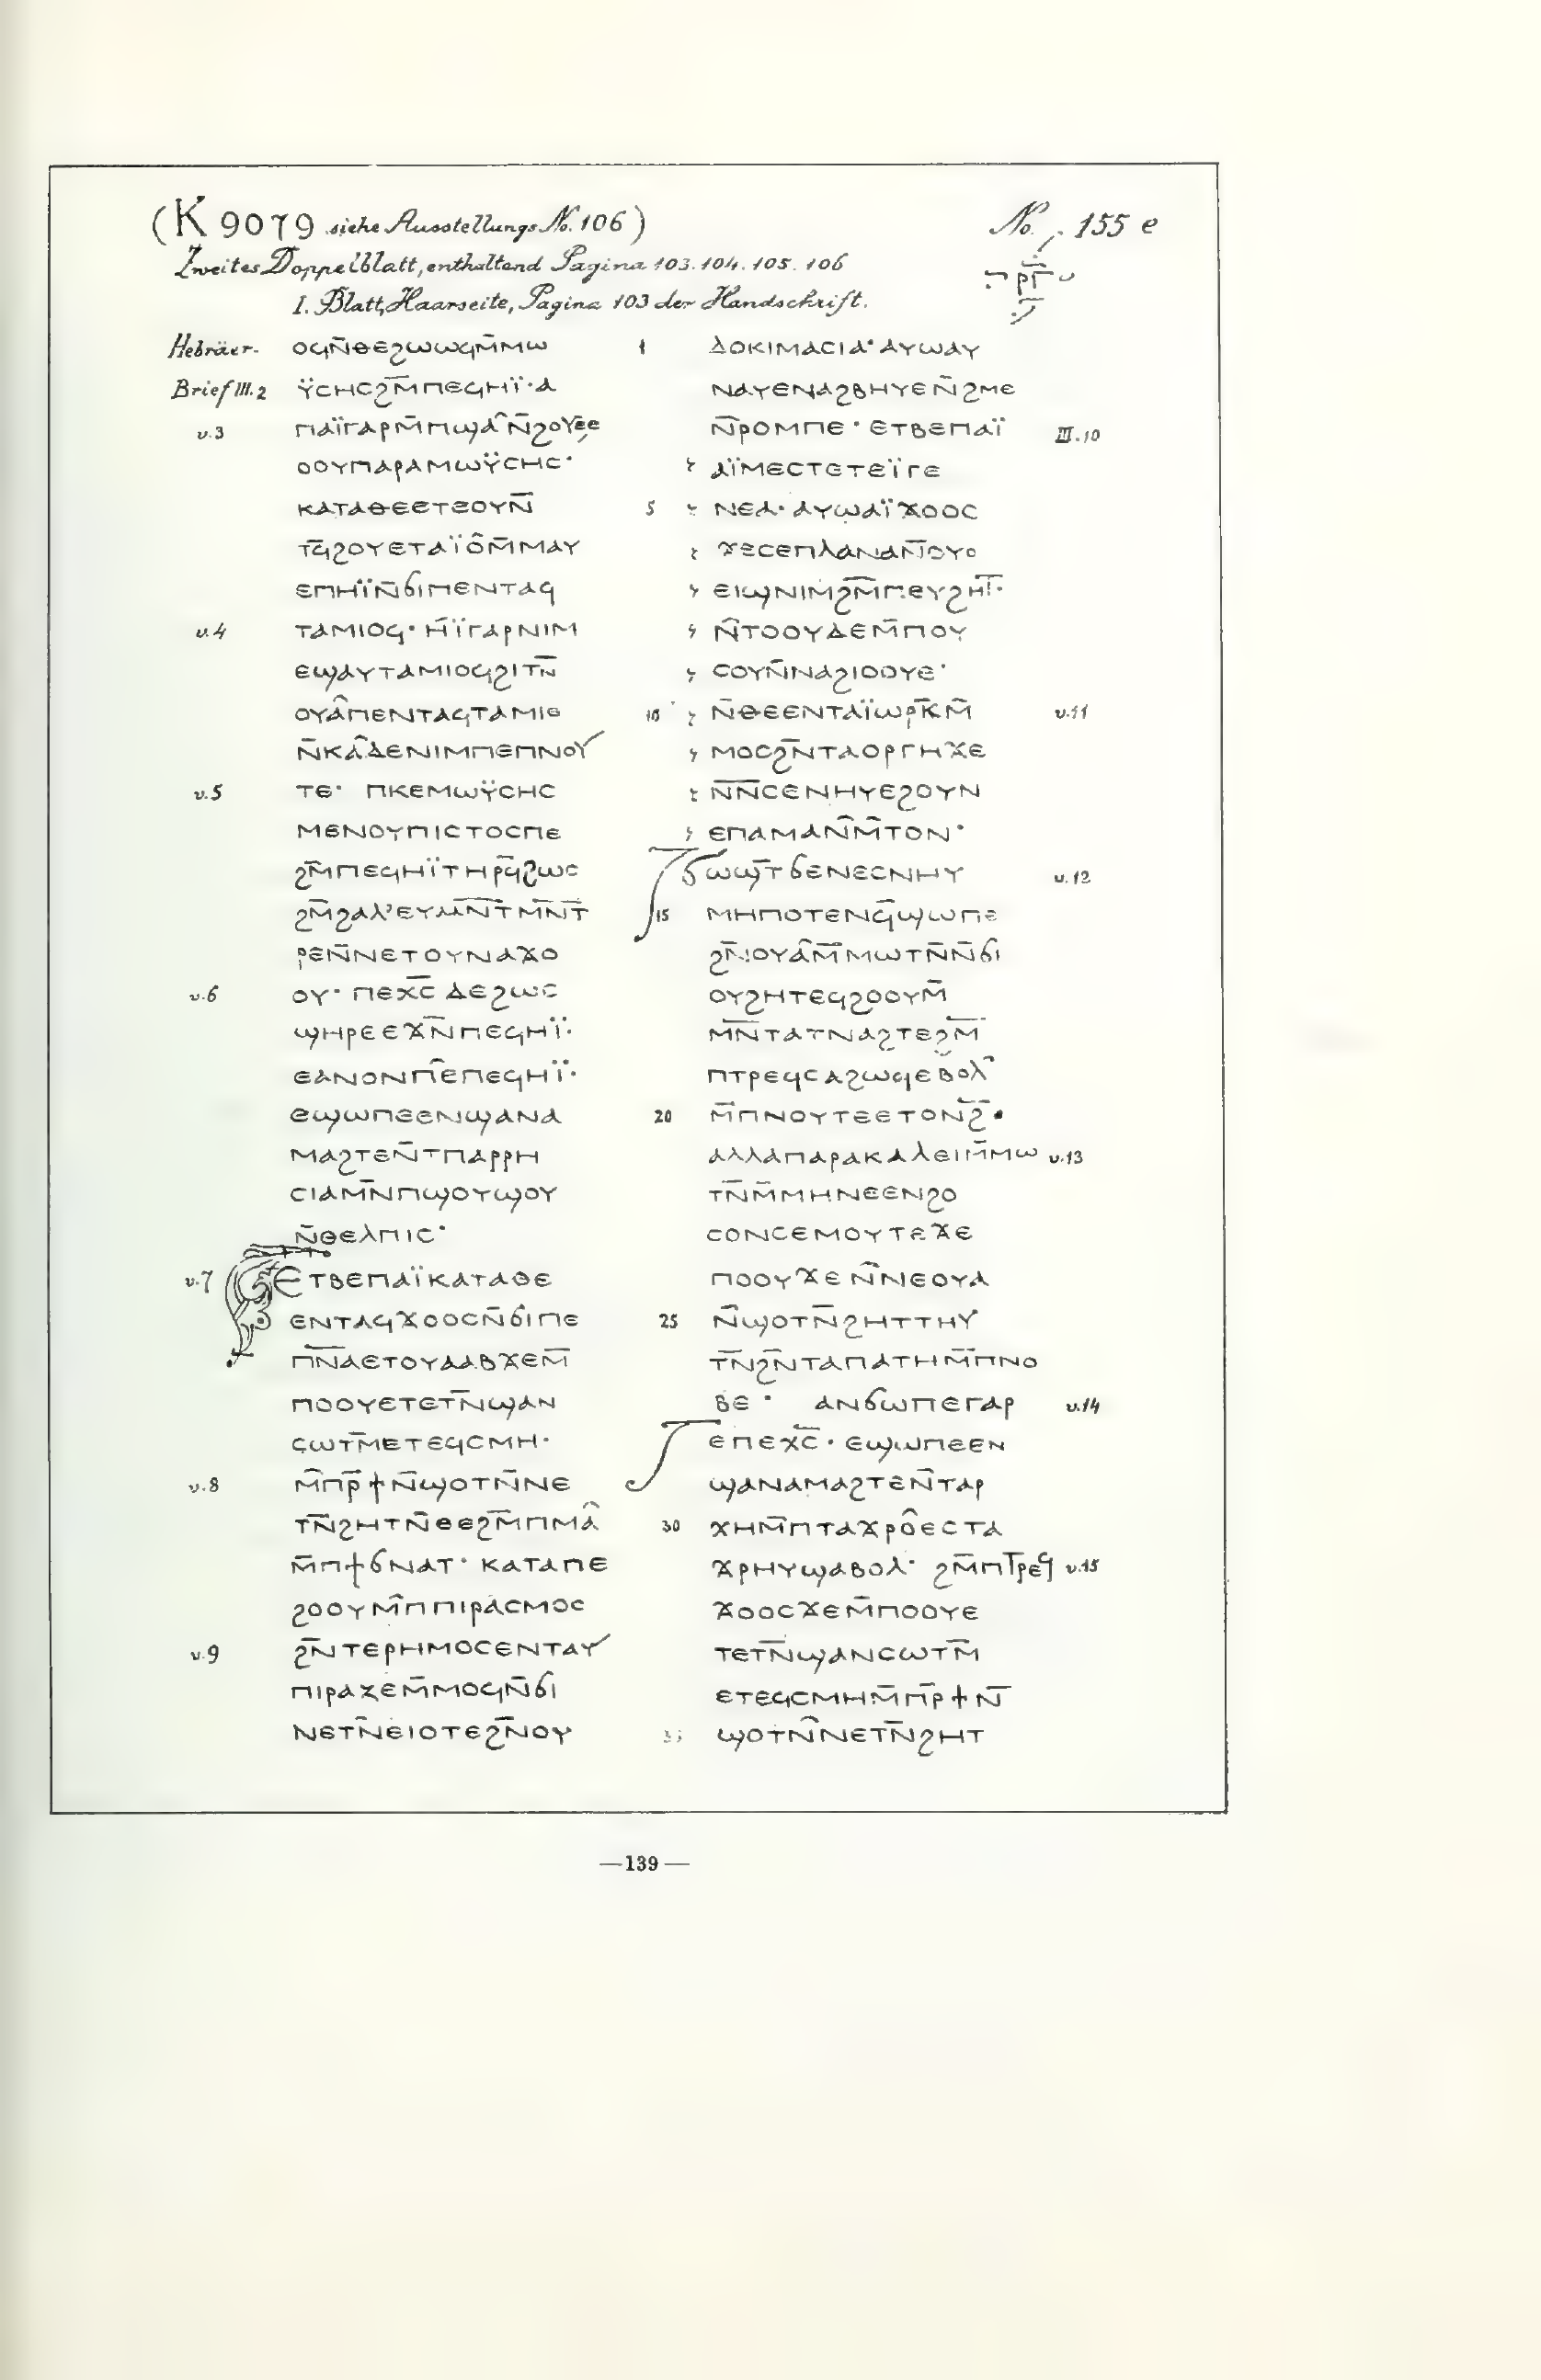 (K 9079 siehe Ausstellungs No. 106)
No. 155 e
Zweites Doppelblatt, enthaltend Pagina 103. 104. 105. 106
ⲣ̅ⲅ̅
I. Blatt, Haarseite, Pagina 103 der Handschrift.
Hebräer- ⲟϥⲛ̄ⲑⲉϩⲱⲱϥⲙ̄ⲙⲱ
Brief III. 2 ⲩ̈ⲥⲏⲥϩⲙ̄ⲡⲉϥⲏⲓ̈· ⲁ
v. 3 ⲡⲁⲓ̈ⲅⲁⲣⲙ̄ⲡϣⲁ̂ⲛ̄ϩⲟⲩⲉⲉ
ⲟⲟⲩⲡⲁⲣⲁⲙⲱⲩ̈ⲥⲏⲥ·
ⲕⲁⲧⲁⲑⲉⲉⲧⲉⲟⲩⲛ̄
ⲧϥ̄ϩⲟⲩⲉⲧⲁⲓ̈ⲟ̂ⲙ̄ⲙⲁⲩ
ⲉⲡⲏⲓ̈ⲛ̄ϭⲓⲡⲉⲛⲧⲁϥ
v. 4 ⲧⲁⲙⲓⲟϥ· ⲏ̄ⲓ̈ⲅⲁⲣⲛⲓⲙ
ⲉϣⲁⲩⲧⲁⲙⲓⲟϥϩⲓⲧⲛ̄
ⲟⲩⲁ̂ⲡⲉⲛⲧⲁϥⲧⲁⲙⲓⲉ
ⲛ̄ⲕⲁ̂ⲇⲉⲛⲓⲙⲡⲉⲡⲛⲟⲩ
v. 5 ⲧⲉ· ⲡⲕⲉⲙⲱⲩ̈ⲥⲏⲥ
ⲙⲉⲛⲟⲩⲡⲓⲥⲧⲟⲥⲡⲉ
ϩⲙ̄ⲡⲉϥⲏⲓ̈ⲧⲏⲣϥ̄ϩⲱⲥ
ϩⲙ̄ϩⲁⲗ’ⲉⲩⲙⲛ̄ⲧⲙⲛ̄ⲧ
ⲣⲉⲛ̄ⲛⲉⲧⲟⲩⲛⲁϫⲟ
v. 6 ⲟⲩ· ⲡⲉⲭ̅ⲥ̅ ⲇⲉϩⲱⲥ
ϣⲏⲣⲉⲉϫⲛ̄ⲡⲉϥⲏⲓ̈·
ⲉⲁⲛⲟⲛⲡ̂ⲉⲡⲉϥⲏⲓ̈·
ⲉϣⲱⲡⲉⲉⲛϣⲁⲛⲁ
ⲙⲁϩⲧⲉⲛ̄ⲧⲡⲁⲣⲣⲏ
ⲥⲓⲁⲙⲛ̄ⲡϣⲟⲩϣⲟⲩ
ⲛ̄ⲑⲉⲗⲡⲓⲥ·
v. 7 ⲉⲧⲃⲉⲡⲁⲓ̈ⲕⲁⲧⲁⲑⲉ
ⲉⲛⲧⲁϥϫⲟⲟⲥⲛ̄ϭⲓⲡⲉ
ⲡ̅ⲛ̅ⲁⲉⲧⲟⲩⲁⲁⲃϫⲉⲙ̄
ⲡⲟⲟⲩⲉⲧⲉⲧⲛ̄ϣⲁⲛ
ⲥⲱⲧⲙ̄ⲉⲧⲉϥⲥⲙⲏ·
v. 8 ⲙ̄ⲡⲣ̄ϯⲛ̄ϣⲟⲧⲛ̄ⲛⲉ
ⲧⲛ̄ϩⲏⲧⲛ̄ⲑⲉϩⲙ̄ⲡⲙⲁ̂
ⲙ̄ⲡϯϭⲛⲁⲧ· ⲕⲁⲧⲁⲡⲉ
ϩⲟⲟⲩⲙ̄ⲡⲡⲓⲣⲁⲥⲙⲟⲥ
v. 9 ϩⲛ̄ⲧⲉⲣⲏⲙⲟⲥⲉⲛⲧⲁⲩ
ⲡⲓⲣⲁⲍⲉⲙ̄ⲙⲟϥⲛ̄ϭⲓ
ⲛⲉⲧⲛ̄ⲉⲓⲟⲧⲉϩⲛ̄ⲟⲩ
1 ⲇⲟⲕⲓⲙⲁⲥⲓⲁ· ⲁⲩⲱⲁⲩ
ⲛⲁⲩⲉⲛⲁϩⲃⲏⲩⲉⲛ̄ϩⲙⲉ
ⲛ̄ⲣⲟⲙⲡⲉ· ⲉⲧⲃⲉⲡⲁⲓ̈ III. 10
ⲁⲓ̈ⲙⲉⲥⲧⲉⲧⲉⲓ̈ⲅⲉ
5 ⲛⲉⲁ· ⲁⲩⲱⲁⲓ̈ϫⲟⲟⲥ
ϫⲉⲥⲉⲡⲗⲁⲛⲁⲛ̄ⲟⲩⲟ
ⲉⲓϣⲛⲓⲙϩⲙ̄ⲡⲉⲩϩⲏⲧ̄·
ⲛ̄ⲧⲟⲟⲩⲇⲉⲙ̄ⲡⲟⲩ
ⲥⲟⲩⲛ̄ⲛⲁϩⲓⲟⲟⲩⲉ·
10 ⲛ̄ⲑⲉⲉⲛⲧⲁⲓ̈ⲱⲣⲕ̄ⲙ̄ v. 11
ⲙⲟⲥϩⲛ̄ⲧⲁⲟⲣⲅⲏϫⲉ
ⲛ̄ⲛ̄ⲥⲉⲛⲏⲩⲉϩⲟⲩⲛ
ⲉⲡⲁⲙⲁⲛ̄ⲙ̄ⲧⲟⲛ·
ϭⲱϣⲧ̄ϭⲉⲛⲉⲥⲛⲏⲩ v. 12
15 ⲙⲏⲡⲟⲧⲉⲛϥ̄ϣⲱⲡⲉ
ϩⲛ̄ⲟⲩⲁ̂ⲙ̄ⲙⲱⲧⲛ̄ⲛ̄ϭⲓ
ⲟⲩϩⲏⲧⲉϥϩⲟⲟⲩⲙ̄
ⲙⲛ̄ⲧⲁⲧⲛⲁϩⲧⲉϩⲙ̄
ⲡⲧⲣⲉϥⲥⲁϩⲱϥⲉⲃⲟⲗ̂
20 ⲙ̄ⲡⲛⲟⲩⲧⲉⲉⲧⲟⲛϩ̄·
ⲁⲗⲗⲁⲡⲁⲣⲁⲕⲁⲗⲉⲓⲙ̄ⲙⲱ v. 13
ⲧⲛ̄ⲙ̄ⲙⲏⲛⲉⲉⲛϩⲟ
ⲥⲟⲛⲥⲉⲙⲟⲩⲧⲉϫⲉ
ⲡⲟⲟⲩϫⲉⲛ̄ⲛⲉⲟⲩⲁ
25 ⲛ̄ϣⲟⲧⲛ̄ϩⲏⲧⲧⲏⲩ
ⲧⲛ̄ϩⲛ̄ⲧⲁⲡⲁⲧⲏⲙ̄ⲡⲛⲟ
ⲃⲉ· ⲁⲛϭⲱⲡⲉⲅⲁⲣ v. 14
ⲉⲡⲉⲭ̅ⲥ̅· ⲉϣⲱⲡⲉⲉⲛ
ϣⲁⲛⲁⲙⲁϩⲧⲉⲛ̄ⲧⲁⲣ
30 ⲭⲏⲙ̄ⲡⲧⲁϫⲣⲟ̂ⲉⲥⲧⲁ
ϫⲣⲏⲩϣⲁⲃⲟⲗ· ϩⲙ̄ⲡⲧⲣⲉϥ v. 15
ϫⲟⲟⲥϫⲉⲙ̄ⲡⲟⲟⲩⲉ
ⲧⲉⲧⲛ̄ϣⲁⲛⲥⲱⲧⲙ̄
ⲉⲧⲉϥⲥⲙⲏⲙ̄ⲡⲣ̄ϯⲛ̄
35 ϣⲟⲧⲛ̄ⲛⲉⲧⲛ̄ϩⲏⲧ
—139—